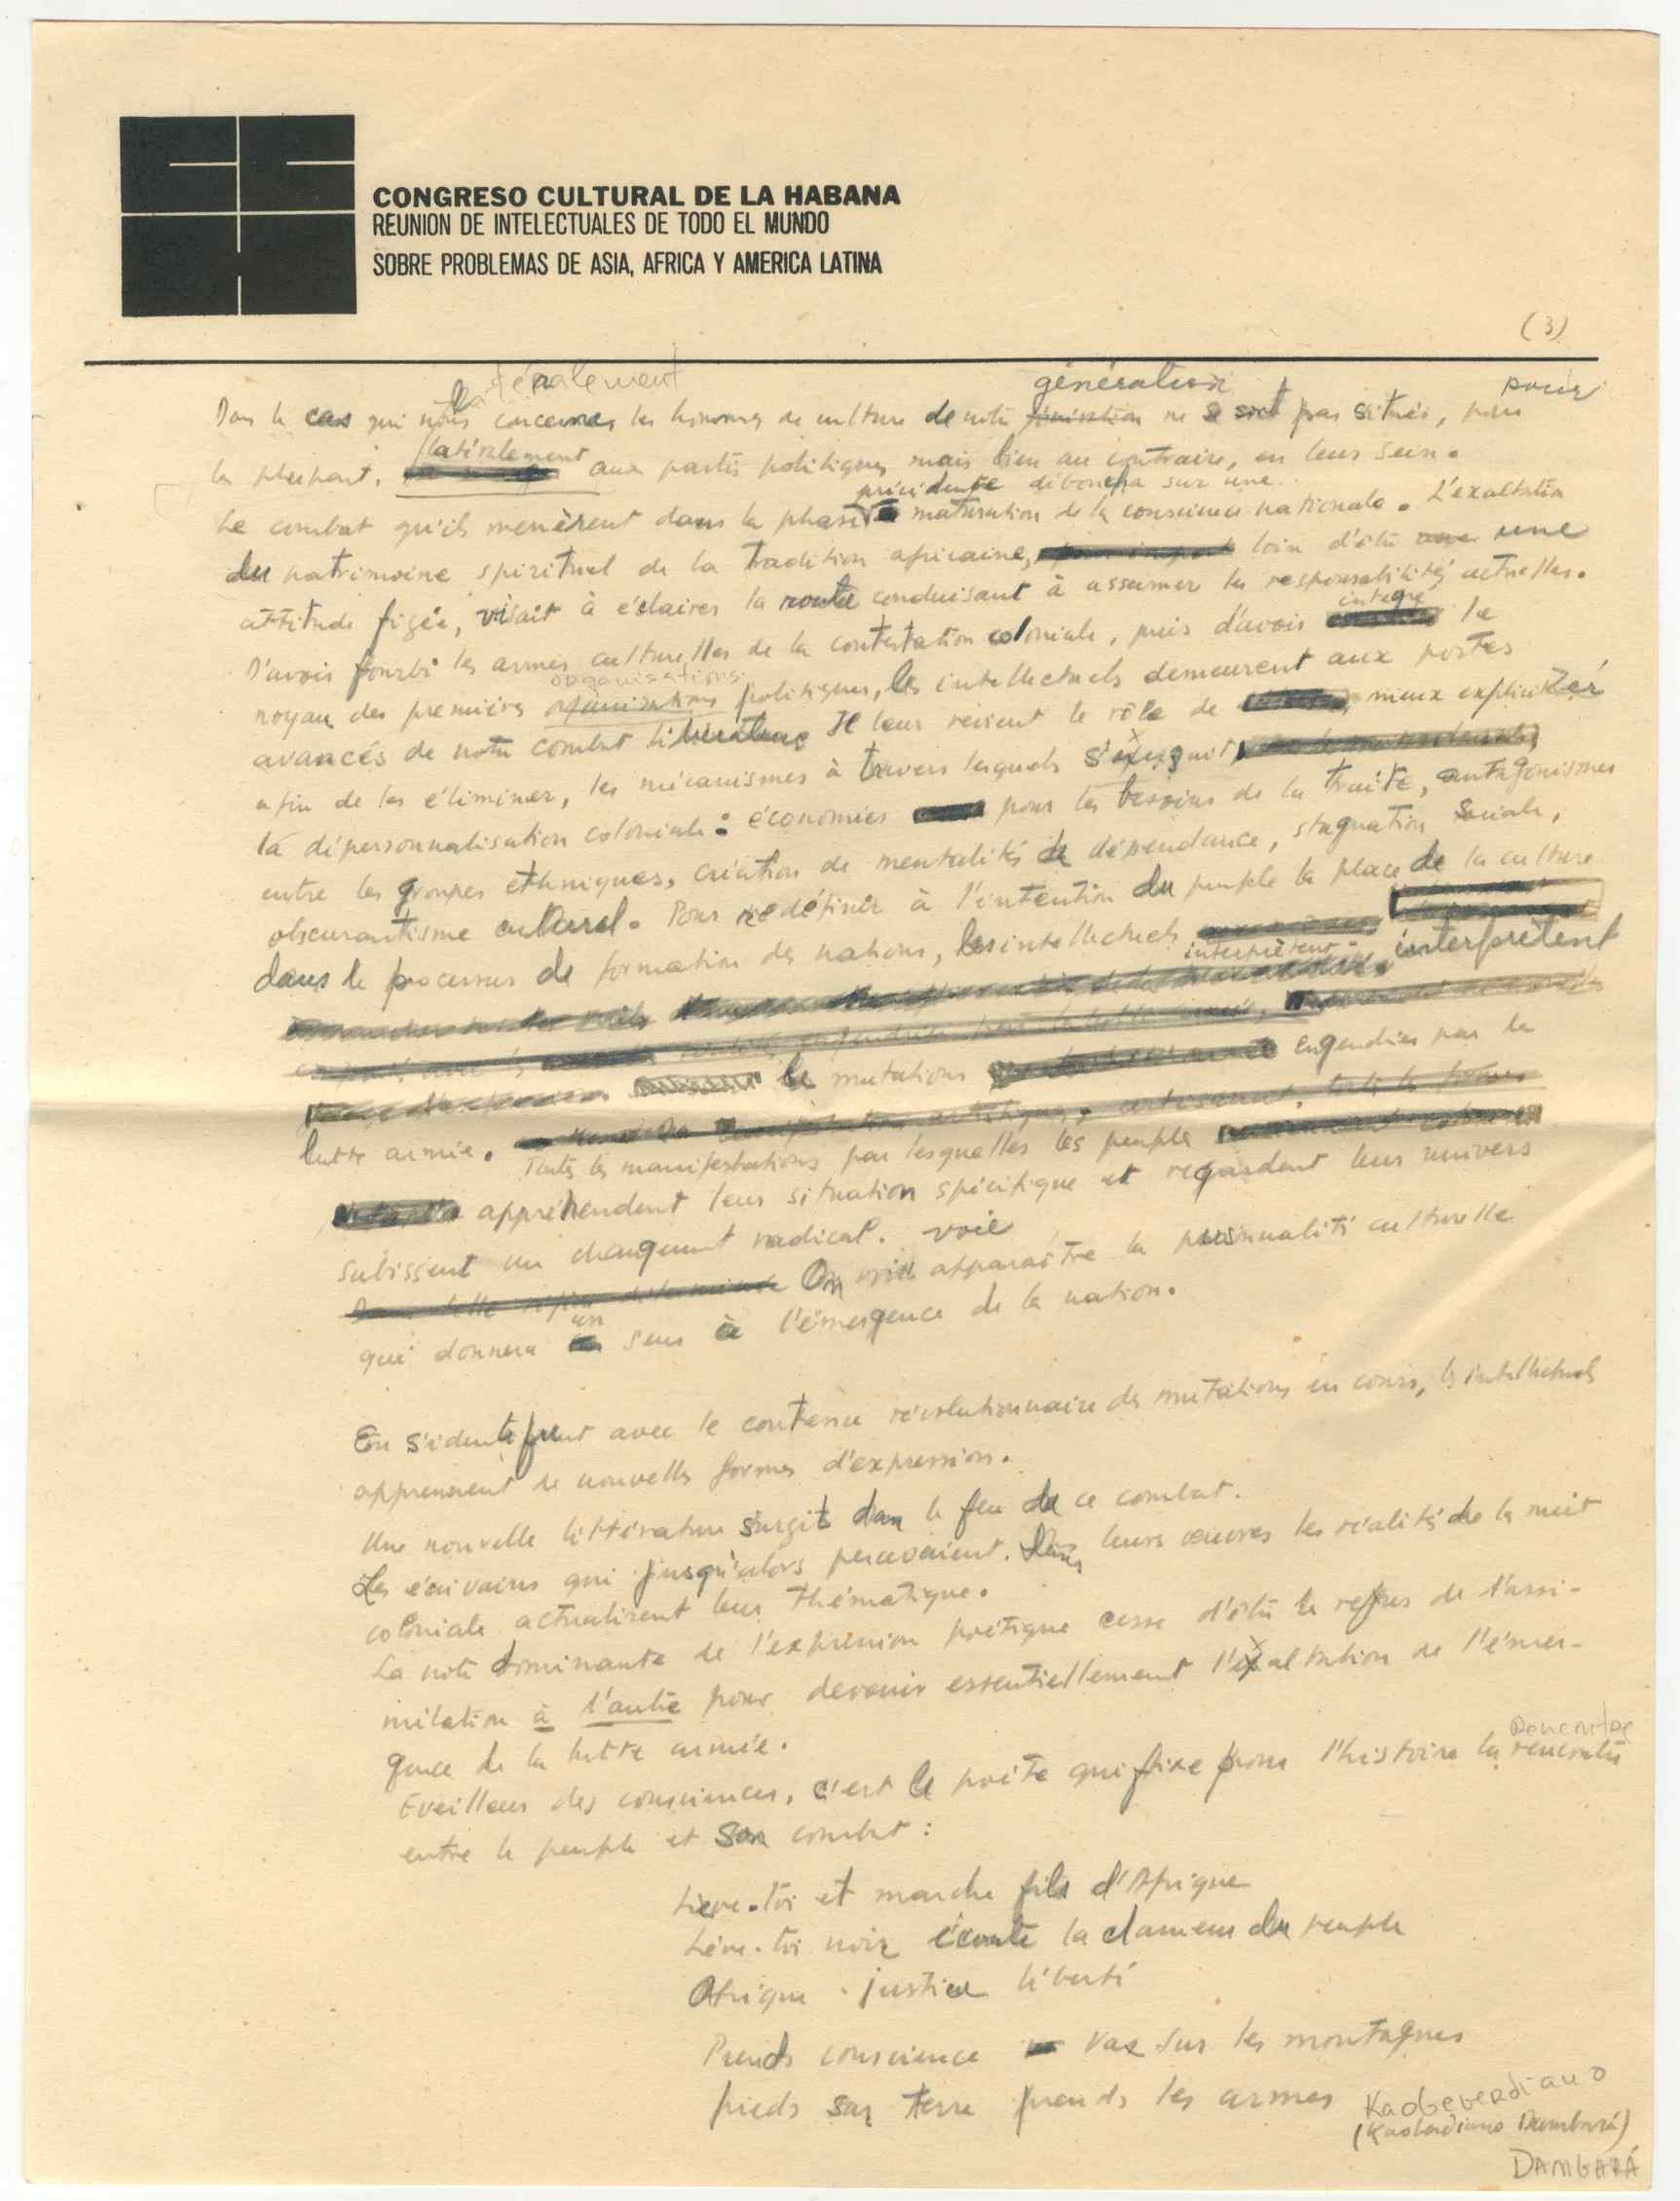 CONGRESO CULTURAL DE LA HABANA
REUNION DE INTELECTUALES DE TODO EL MUNDO
SOBRE PROBLEMAS DE ASIA, AFRICA Y AMERICA LATINA
(3)
latéralement génération pour
Dans le cas qui nous concerne, les hommes de culture de notre génération ne se sont pas situés, pour
la plupart, latéralement aux partis politiques mais bien au contraire, en leur sein.
précédente déboucha sur une
Le combat qu'ils menèrent dans la phase maturation de la conscience nationale. L'exaltation
du patrimoine spirituel de la tradition africaine, loin d'être une
attitude figée, visait à éclairer la route conduisant à assumer les responsabilités actuelles.
D'avoir fourbi les armes culturelles de la contestation coloniale, puis d'avoir intégré le
organisations
noyau des premières organisations politiques, les intellectuels demeurent aux postes
avancés de notre combat libérateur. Il leur revient le rôle de mieux expliciter
afin de les éliminer, les mécanismes à travers lesquels s'exerçait
la dépersonnalisation coloniale : économies pour les besoins de la traite, antagonismes
entre les groupes ethniques, création de mentalités de dépendance, stagnation sociale,
obscurantisme culturel. Pour redéfinir à l'intention du peuple la place de la culture
dans le processus de formation des nations, les intellectuels
interprètent interprètent
les mutations engendrées par la
lutte armée.
Toutes les manifestations par lesquelles les peuples
appréhendent leur situation spécifique et regardent leur univers
subissent un changement radical. voit
On voit apparaître la personnalité culturelle
qui donnera un sens à l'émergence de la nation.
En s'identifiant avec le contenu révolutionnaire des mutations en cours, les intellectuels
apprennent de nouvelles formes d'expression.
Une nouvelle littérature surgit dans le feu de ce combat.
Les écrivains qui jusqu'alors percevaient dans leurs œuvres les réalités de la nuit
coloniale actualisent leur thématique.
La note dominante de l'expression poétique cesse d'être le refus de l'assi-
milation à l'autre pour devenir essentiellement l'exaltation de l'émer-
gence de la lutte armée.
rencontre
Eveilleur des consciences, c'est le poète qui fixe pour l'histoire la rencontre
entre le peuple et son combat :
Lève-toi et marche fils d'Afrique
Lève-toi noir écoute la clameur du peuple
Afrique justice liberté
Prends conscience Vas sur les montagnes
pieds sur terre prends les armes Kaoberdiano
(Kaoberdiano Dambará)
DAMBARÁ